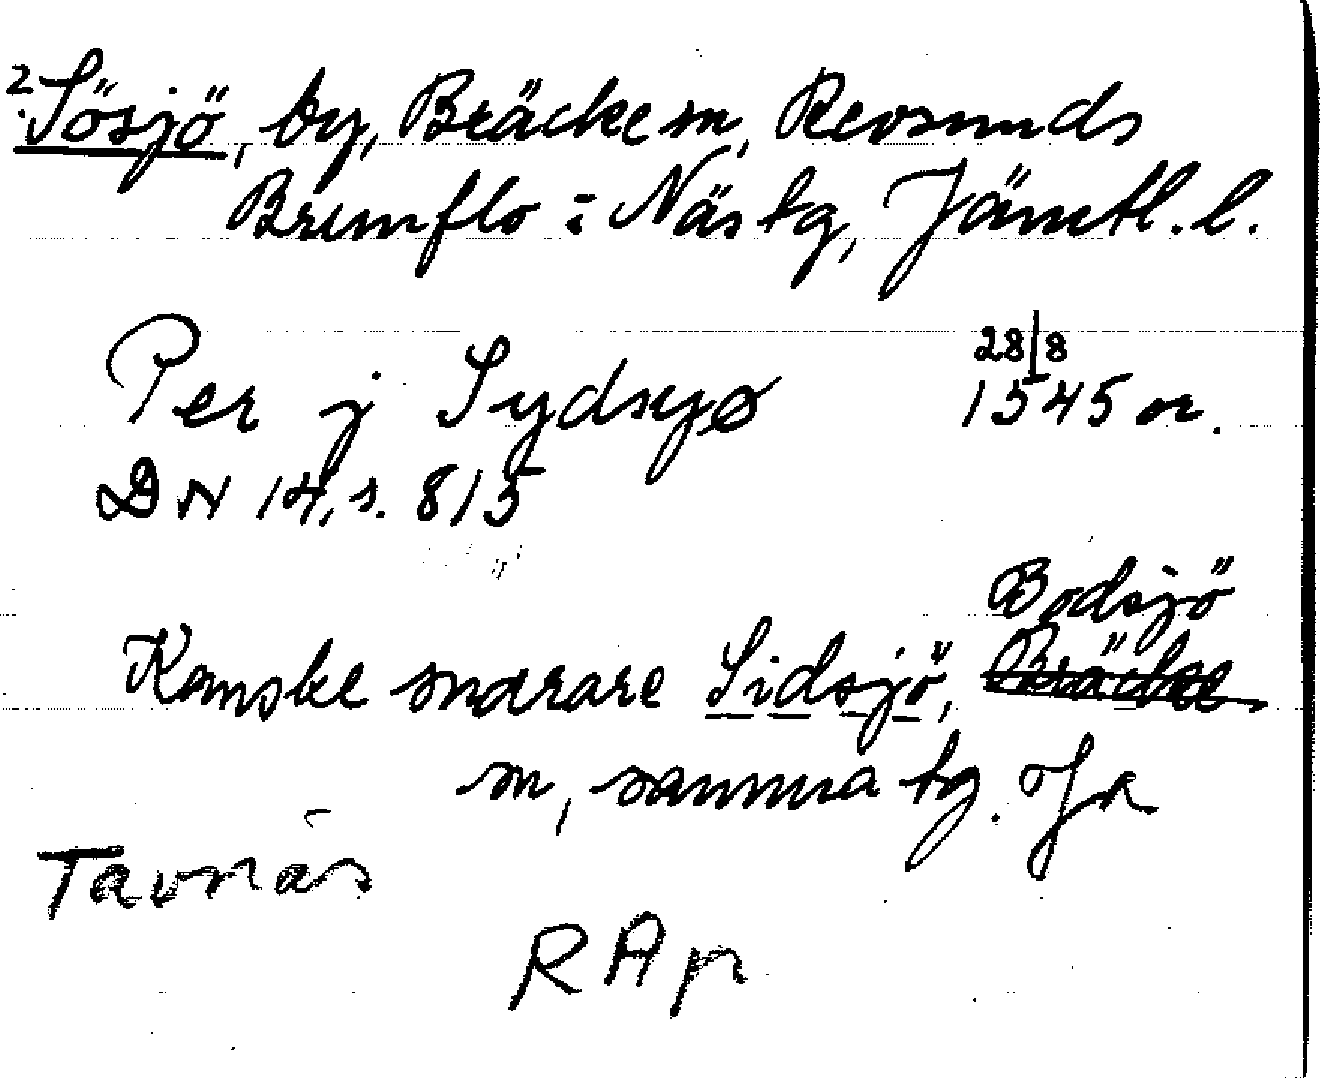 2. Sösjö, by, Bräcke sn, Revsunds
Brunflo i Näs tg, Jämtl. l.
28/8
Per j Sydsyø 1545 or.
DN 14, s. 815
Bodsjö
Kanske snarare Sidsjö, Bräcke
sn, samma tg. Jfr
Tavnäs
RAp